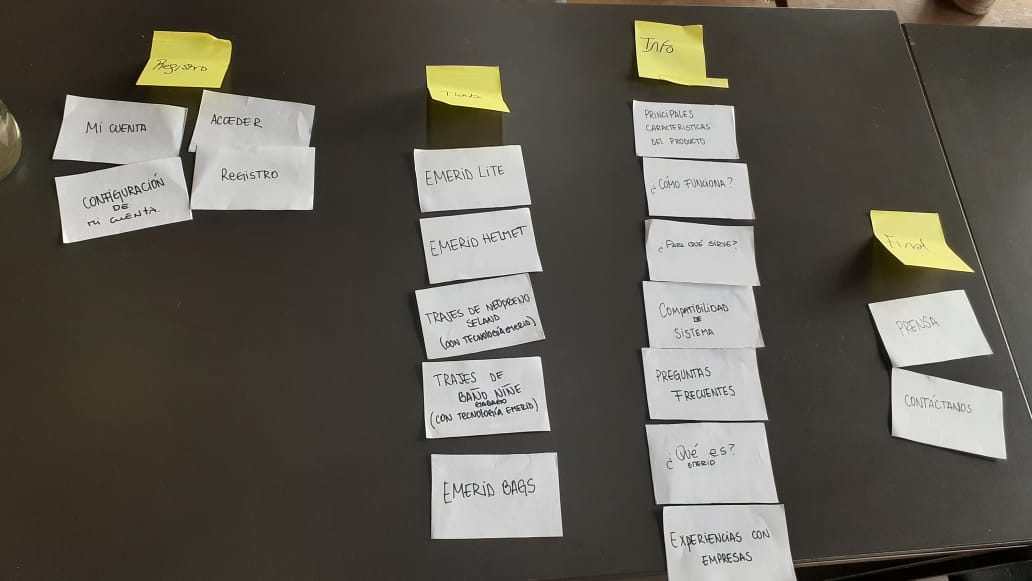 Registro
MI CUENTA
ACCEDER
CONFIGURACIÓN
DE
MI CUENTA.
REGISTRO
EMERID LITE
EMERID HELMET
TRAJES DE NEOPRENO
SELAND
(CON TECNOLOGÍA EMERID)
TRAJES DE
BAÑO NIÑE
(CON TECNOLOGÍA EMERID)
EMERID BAGS
Info
PRINCIPALES
CARACTERISTICAS
DEL PRODUCTO
¿CÓMO FUNCIONA?
¿PARA QUÉ SIRVE?
COMPATIBILIDAD
DE
SISTEMA
PREGUNTAS
FRECUENTES
¿Qué es?
EMERID
EXPERIENCIAS CON
EMPRESAS
Final
PRENSA
CONTÁCTANOS